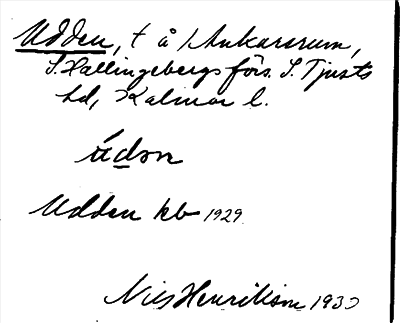 Udden, t å Ankarsrum,
S. Hallingebergs förs. S. Tjusts
hd, Kalmar l.
ùdọn
Udden kb 1929.
Nils Henrikson 1930